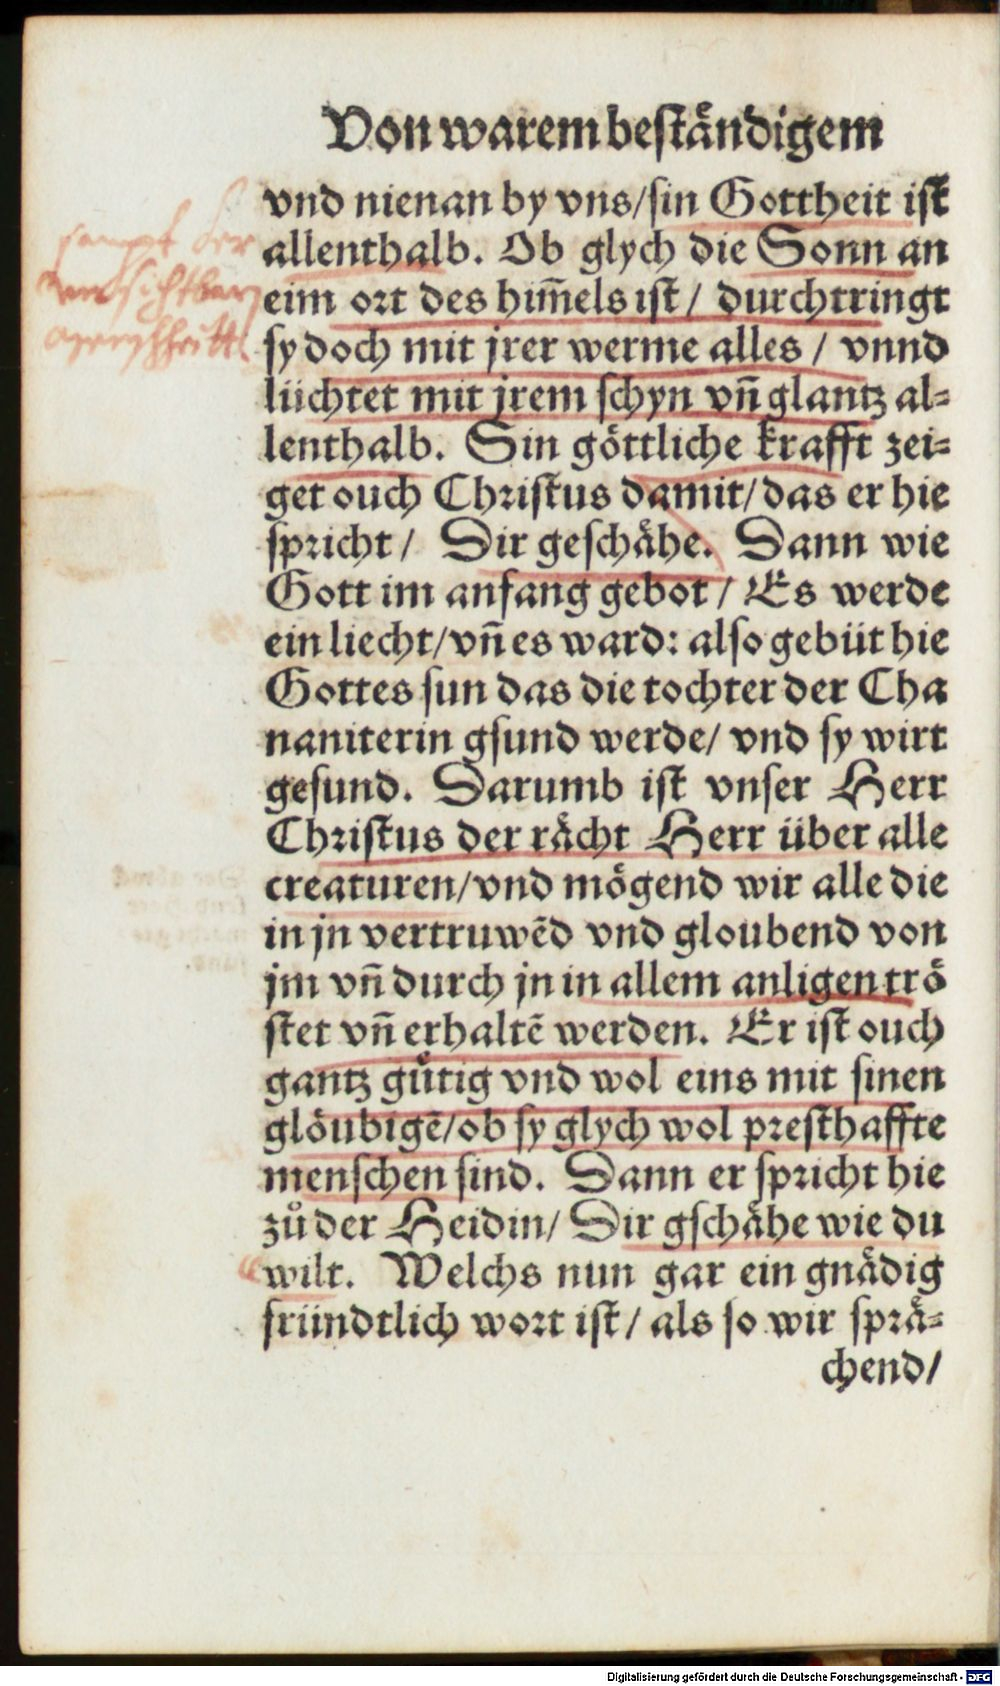 Von warem beſtändigem
vnd nienan by vns/ſin Gottheit iſt
allenthalb. Ob glych die Sonn an
eim ort des him̃els iſt / durchtringt
ſy doch mit jrer werme alles / vnnd
lüchtet mit jrem ſchyn vñ glantz al⸗
lenthalb. Sin göttliche krafft zei⸗
get ouch Chriſtus damit/das er hie
ſpricht / Dir geſchähe. Dann wie
Gott im anfang gebot / Es werde
ein liecht/vñ es ward: alſo gebüt hie
Gottes ſun das die tochter der Cha
naniterin gſund werde/ vnd ſy wirt
geſund. Darumb iſt vnſer Herr
Chriſtus der rächt Herr über alle
creaturen/vnd mögend wir alle die
in jn vertruwẽd vnd gloubend von
jm vñ durch jn in allem anligen trö
ſtet vñ erhaltẽ werden. Er iſt ouch
gantz gůtig vnd wol eins mit ſinen
glöubigẽ/ob ſy glych wol preſthaffte
menſchen ſind. Dann er ſpricht hie
zů der Heidin/ Dir gſchähe wie du
wilt. Welchs nun gar ein gnädig
fründtlich wort iſt / als ſo wir ſprä⸗
chend/
Digitalisierung gefördert durch die Deutsche Forschungsgemeinschaft - DFG